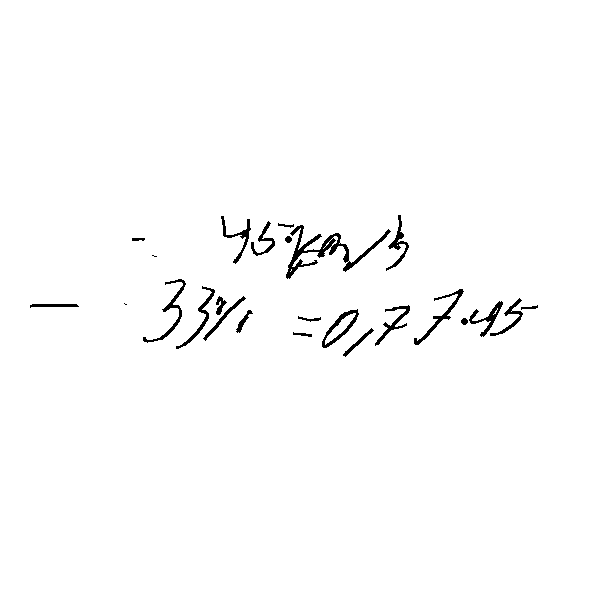 - 45 km/h
— 33% = 0,77·45